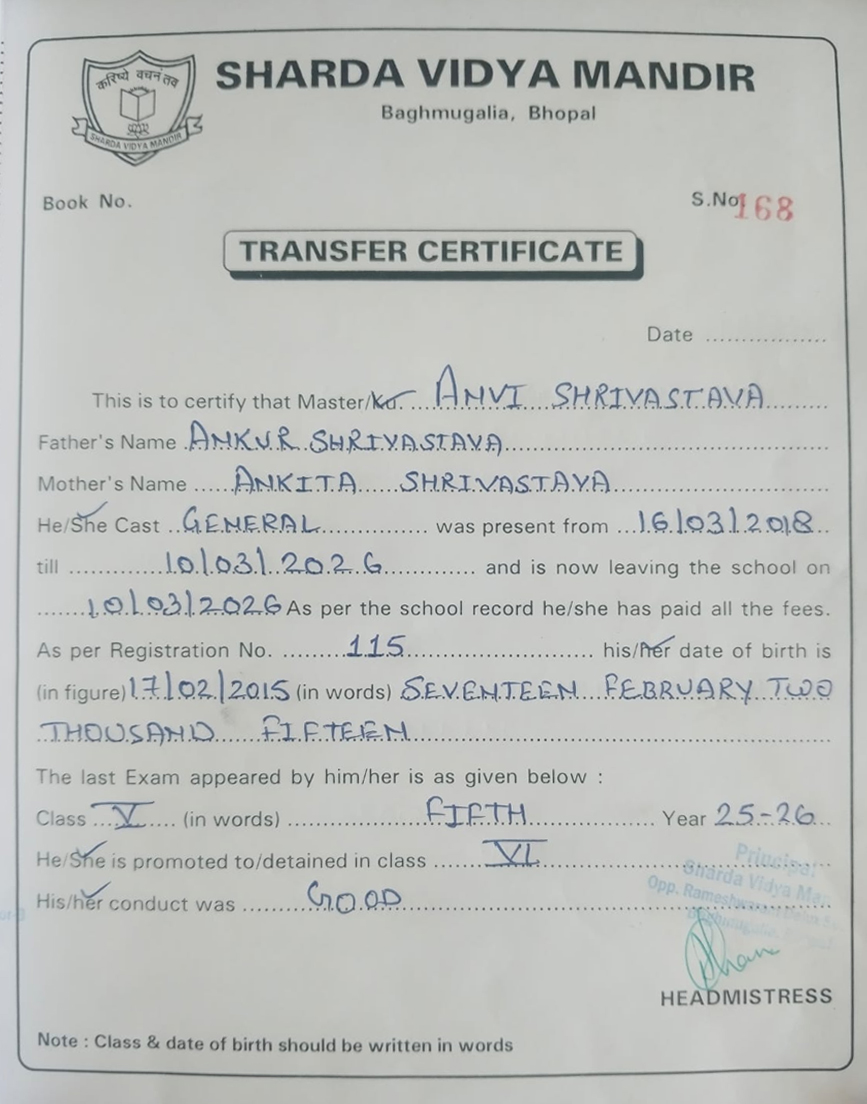 करिष्ये वचनं तव
SHARDA VIDYA MANDIR
SHARDA VIDYA MANDIR
Baghmugalia, Bhopal
Book No.
S.No. 168
TRANSFER CERTIFICATE
Date ..................
This is to certify that Master/Ku. ANVI SHRIVASTAVA
Father's Name ANKUR SHRIVASTAVA
Mother's Name ANKITA SHRIVASTAVA
He/She Cast GENERAL was present from 16/03/2018
till 10/03/2026 and is now leaving the school on
10/03/2026 As per the school record he/she has paid all the fees.
As per Registration No. 115 his/her date of birth is
(in figure) 17/02/2015 (in words) SEVENTEEN FEBRUARY TWO
THOUSAND FIFTEEN
The last Exam appeared by him/her is as given below :
Class V (in words) FIFTH Year 25-26
He/She is promoted to/detained in class VI
Principal
Sharda Vidya
Opp. Rameshwaram
His/her conduct was GOOD
HEADMISTRESS
Note : Class & date of birth should be written in words